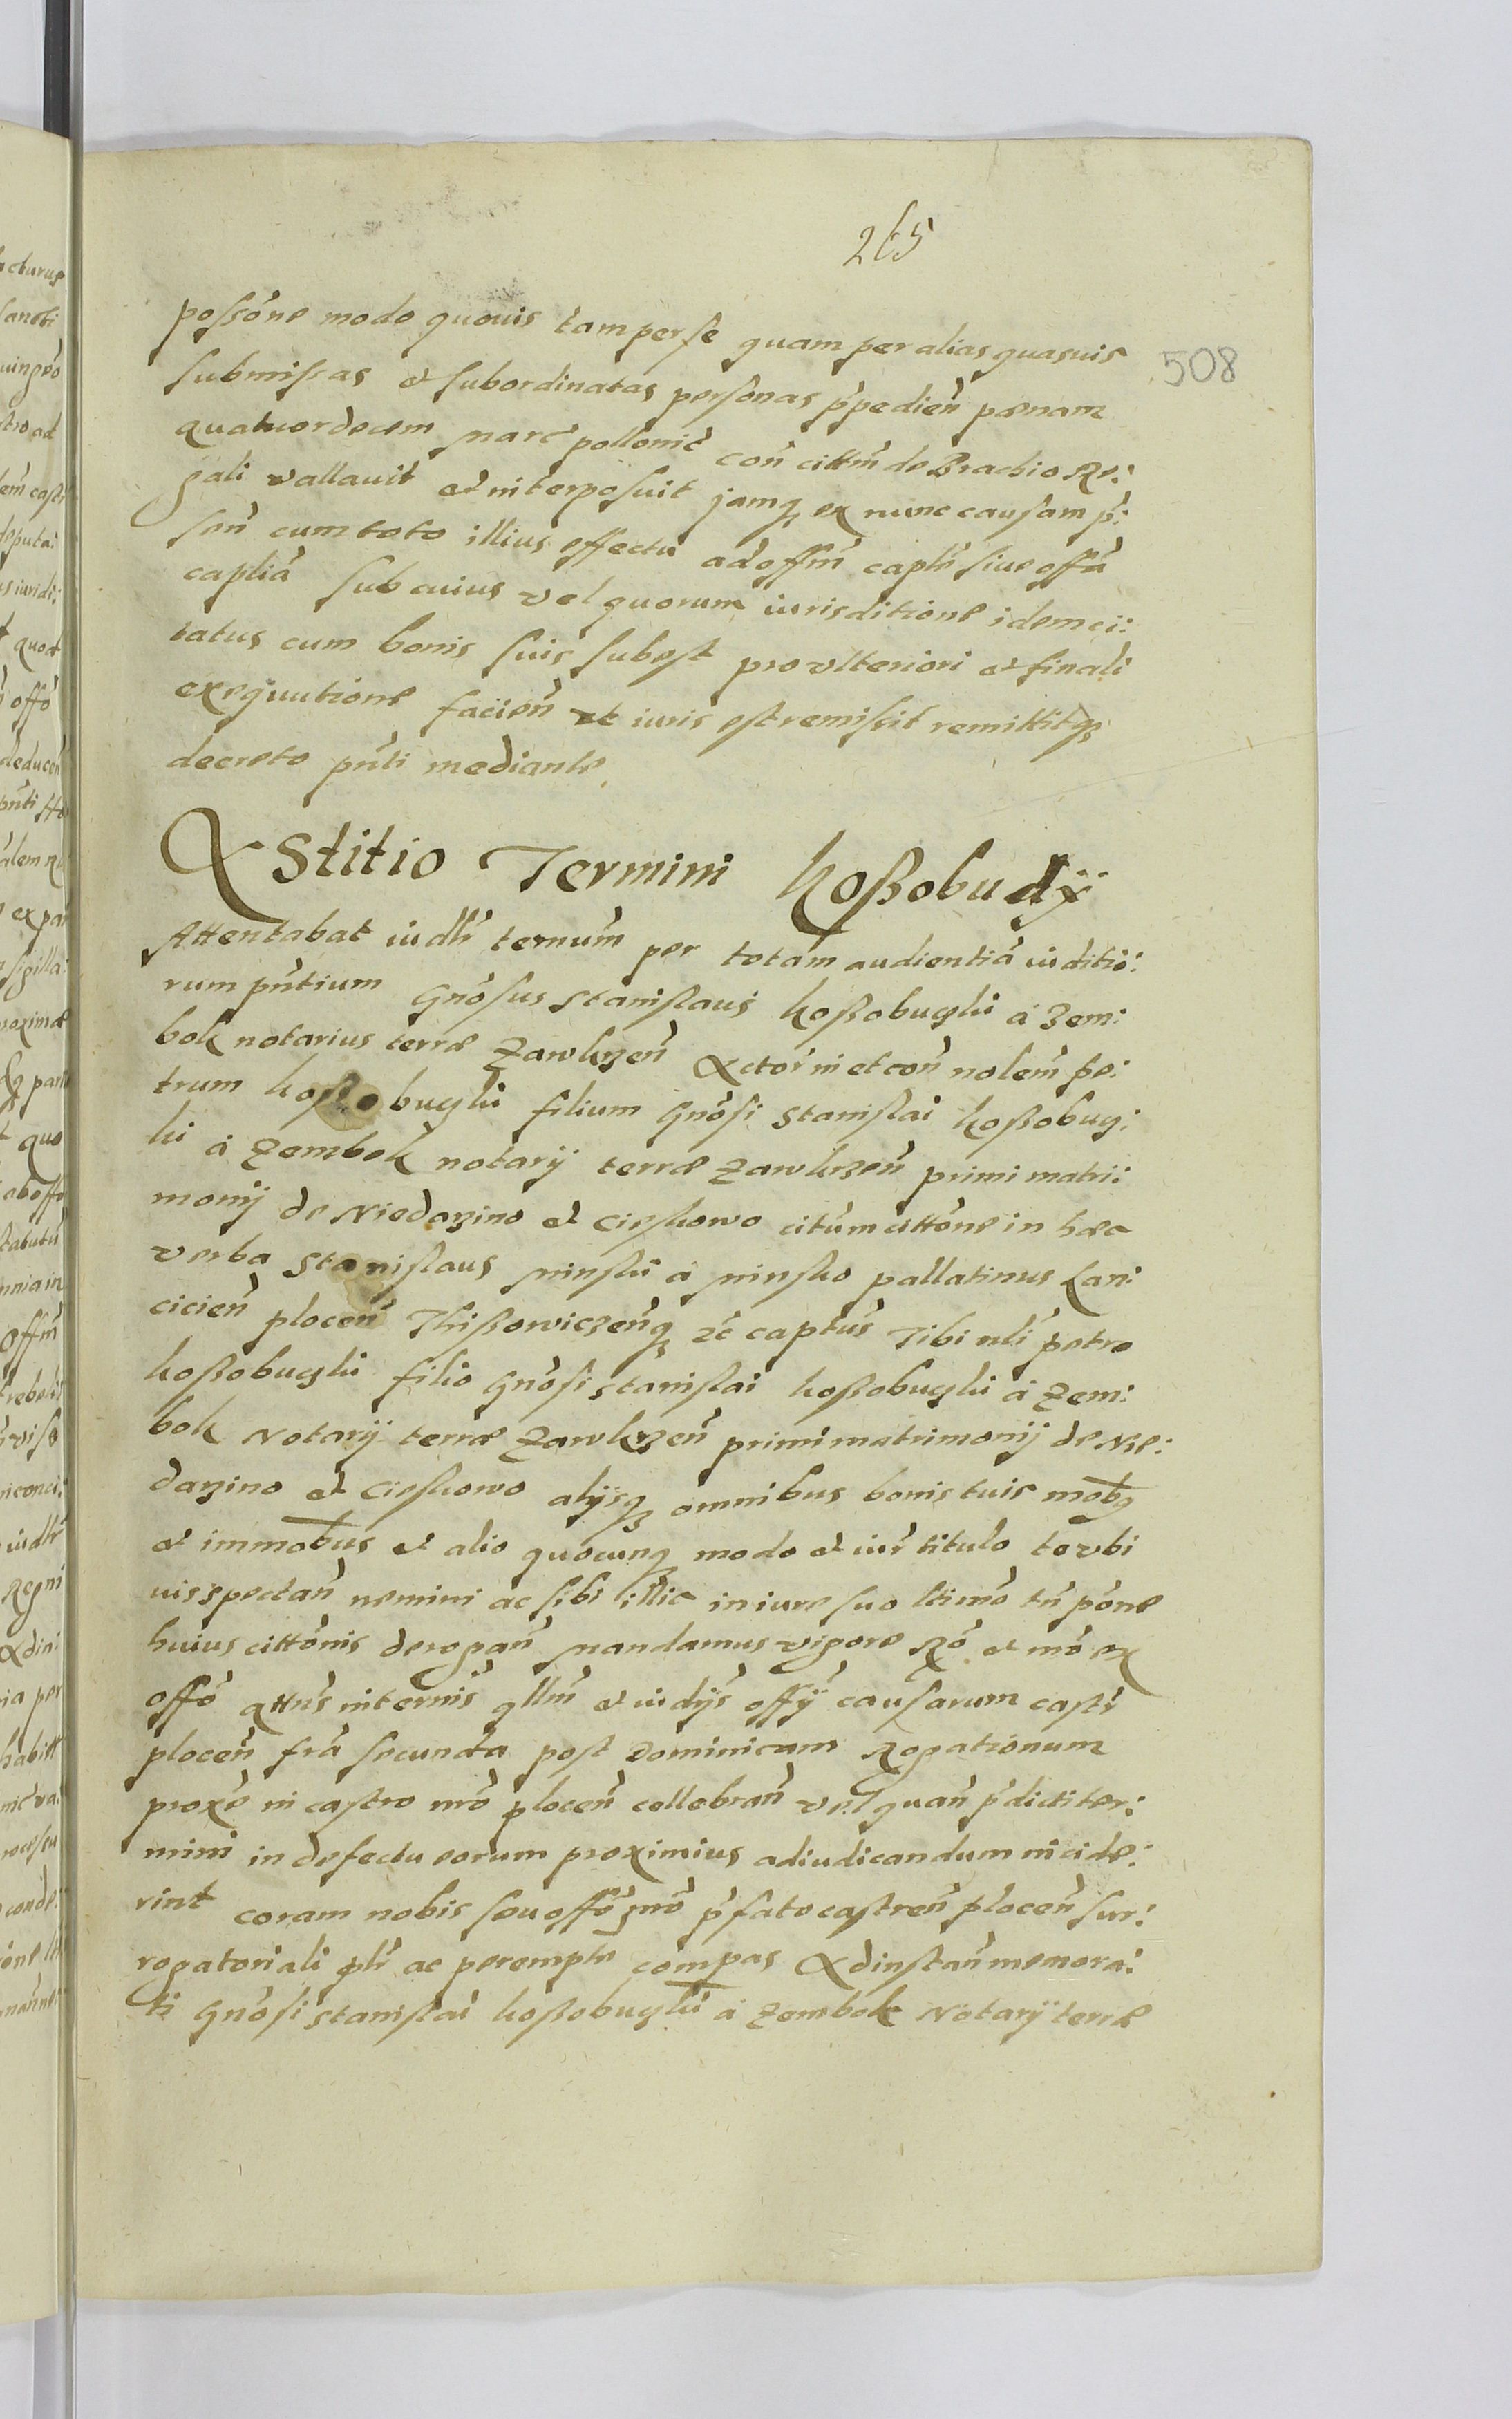 265
508
possōne modo quovis tam per se quam per alias quasvis
submissas et subordinatas personas p̄pedien̄ pœnam
quatuordecem marc̄ pollonic̄ con̄ cittm̄ de Brachio Re:
gali vallavit et interposuit jamq₃ ex nunc causam p̄:
sen̄ cum toto illius effectu ad offm̄ capth̄ sive offā
captiā sub cuius vel quorum iurisditione idem ci:
tatus cum bonis suis subest pro ulteriori et finali
exequutione facien̄ ut iuris est remissit remittitq₃
decreto pn̄ti mediante
Astitio Termini Koßobudÿ
Attentabat iudlr̄ termum̄ per totam audientiā iuditio:
rum pn̄tium Gnōsus Stanislaus Koßobuczki à Zem:
bok notarius terræ Zawkrzen̄ Actor in et con̄ nolem̄ Pe:
trum Koßobuczki filium Gnōsi Stanislai Koßobuc:
ki à Zembok notarij terræ Zawkrzen̄ primi matri:
monij de Niedarzino et Cieskowo citum̄ cittōne in hæc
verba Stanislaus Minski à Minsko pallatinus Lan:
cicien̄ plocen̄ Thißowiczenq₃ ec̄ captus̄ Tibi nli̅ Petro
Koßobuczki filio Gnōsi Stanislai Koßobuczki à Zem:
bok Notarij terræ Zawkrzen̄ primi matrimonij de Nie:
darzino et Cieskowo alijsq₃ omnibus bonis tuis mob̄q
et immob̄us et alio quocunq₃ modo et iur̄ titulo te ubi
vis spectan̄ nemini ac sibi illic in iure suo ltimō tn̄ pōne
huius cittōnis derogan̄ mandamus vigore Rō et mō ex
offō qttus̄ in termis̄ qllm̄ et iudijs̄ offij̄ causarum castr̄
plocen̄ frā secunda post Dominicam Rogationum
proxē in castro nrō plocen̄ cellebran̄ vel quan̄ p̄dicti ter:
mini in defectu eorum proximius adiudicandum incide:
rint coram nobis seu offō nrō p̄fato castren̄ plocen̄ sur:
rogatoriali plr̄ ac perempte compas Ad instan̄ memora:
ti Gnōsi Stanislai Koßobuczki à Zembok Notarij terræ